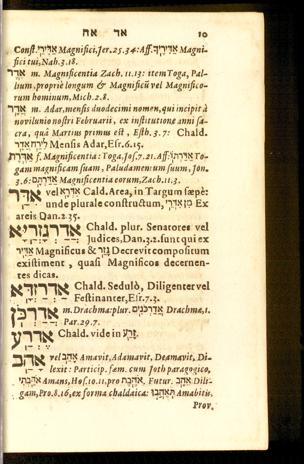 אד אח 10
Const. אַדִּירֵי Magnifici. Jer. 25. 34: Aff. אַדִּירֶיךָ Magni-
fici tui, Nah. 3. 18.
אֶדֶר m. Magnificentia Zach. 11. 13: item Toga, Pal-
lium, propriè longum & Magnificũ vel Magnifico-
rum hominum, Mich. 2. 8.
אֲדָר m. Adar, mensis duodecimi nomen, qui incipit à
novilunio nostri Februarii, ex institutione anni sa-
cra, quâ Martius primus est, Esth. 3. 7: Chald.
לִירַח אֲדָר Mensis Adar, Esr. 6. 15.
אַדֶּרֶת f. Magnificentia: Toga, Jos. 7. 21. Aff: אַדַּרְתּוֹ To-
gam magnificam suam, Paludamentum suum, Jon.
3. 6: אַדַּרְתָּם Magnificentia eorum, Zach. 11. 3.
אִדַּר vel אִדְּרָא Cald. Area, in Targum sæpè:
unde plurale constructum, מִן אִדְּרֵי Ex
areis Dan. 2. 35.
אֲדַרְגָּזְרַיָּא Chald. plur. Senatores vel
Judices, Dan. 3. 2. sunt qui ex
אַדִּיר Magnificus & גְּזַר Decrevit compositum
existiment, quasi Magnificos decernen-
tes dicas.
אַדְרַזְדָּא Chald. Sedulò, Diligenter vel
Festinanter, Esr. 7. 3.
אֲדַרְכֹּן m. Drachma: plur. אֲדַרְכֹּנִים Drachmæ, 1.
Par. 29. 7.
אֶדְרָע Chald. vide in זְרָע.
אָהַב vel אָהֵב Amavit, Adamavit, Deamavit, Di-
lexit: Particip. fæm. cum Joth paragogico,
אֹהַבְתִּי Amans, Hos. 10. 11. pro אֹהֶבֶת. Futur. אֵהַב Dili-
gam, Pro. 8. 16, ex forma chaldaica: תְּאֵהֲבוּ Amabitis,
Prov.